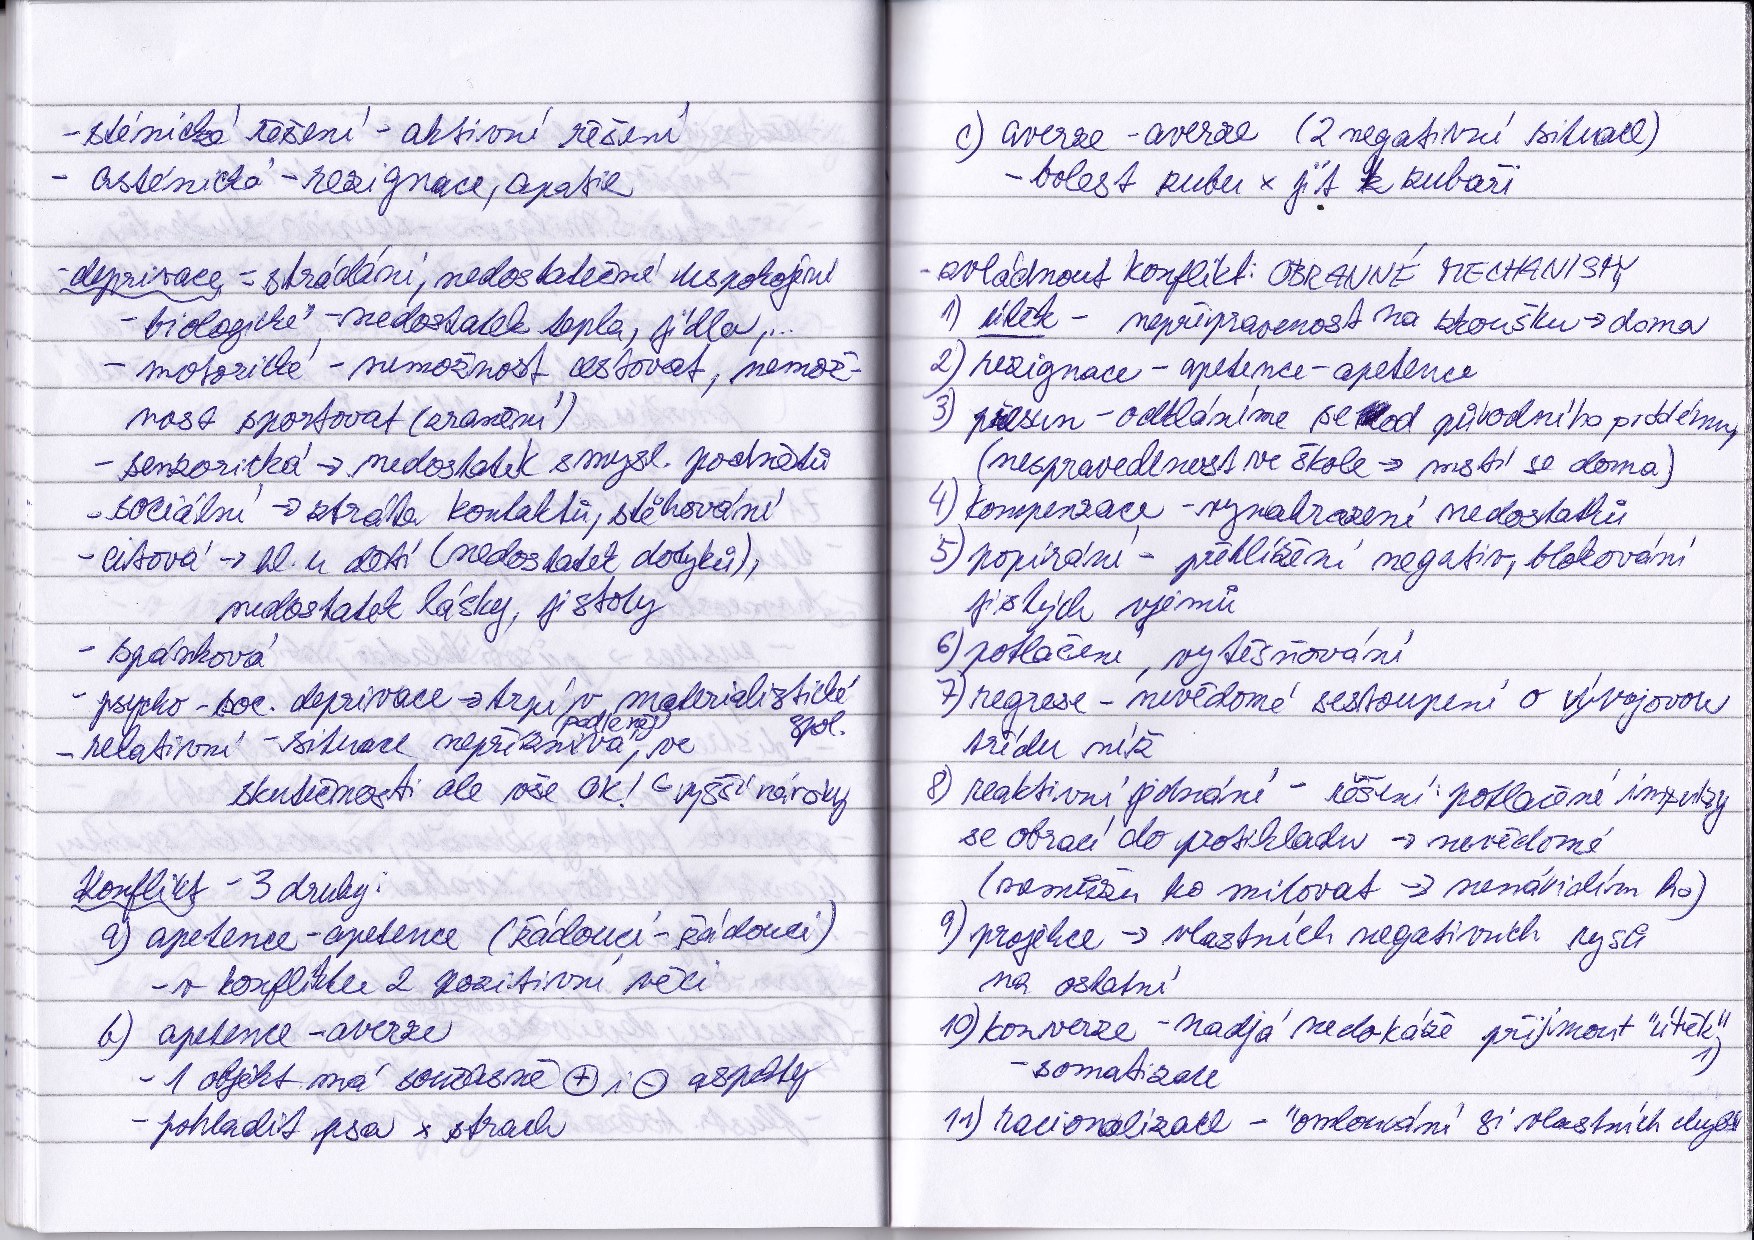 - sténická řešení - aktivní řešení
- asténická - rezignace, apatie
- deprivace - strádání, nedostatečné uspokojení
- biologické - nedostatek tepla, jídla,...
- motorické - nemožnost cestovat, nemož-
nost sportovat (zranění)
- senzorická → nedostatek smysl. podnětů
- sociální → ztráta kontaktů, stěhování
- citová → hl. u dětí (nedostatek dotyků),
nedostatek lásky, jistoty
- spánková
- psycho - soc. deprivace → trpí v materialistické
spol.
- relativní - situace nepříznivá (podle něj), ve
skutečnosti ale vše OK! vyšší nároky
Konflikt - 3 druhy:
a) apetence - apetence (žádoucí - žádoucí)
- v konfliktu 2 pozitivní věci
b) apetence - averze
- 1 objekt má současně + i - aspekty
- pohladit psa x strach
c) averze - averze (2 negativní situace)
- bolest zubu x jít k zubaři
- zvládnout konflikt: OBRANNÉ MECHANISMY
1) útěk - nepřipravenost na zkoušku → doma
2) rezignace - apetence - apetence
3) přesun - odkláníme se od původního problému,
(nespravedlnost ve škole → mstí se doma)
4) kompenzace - vynahrazení nedostatků
5) popírání - přehlížení negativ, blokování
jistých vjemů
6) potlačení, vytěsňování
7) regrese - nevědomé sestoupení o vývojovou
třídu níž
8) reaktivní jednání - řešení: potlačené impulzy
se obrací do protikladu → nevědomé
(nemůžu ho milovat → nenávidím ho)
9) projekce → vlastních negativních rysů
na ostatní
10) konverze - nadjá nedokáže přijmout "útěk"
1)
- somatizace
11) racionalizace - "omlouvání si vlastních chyb"